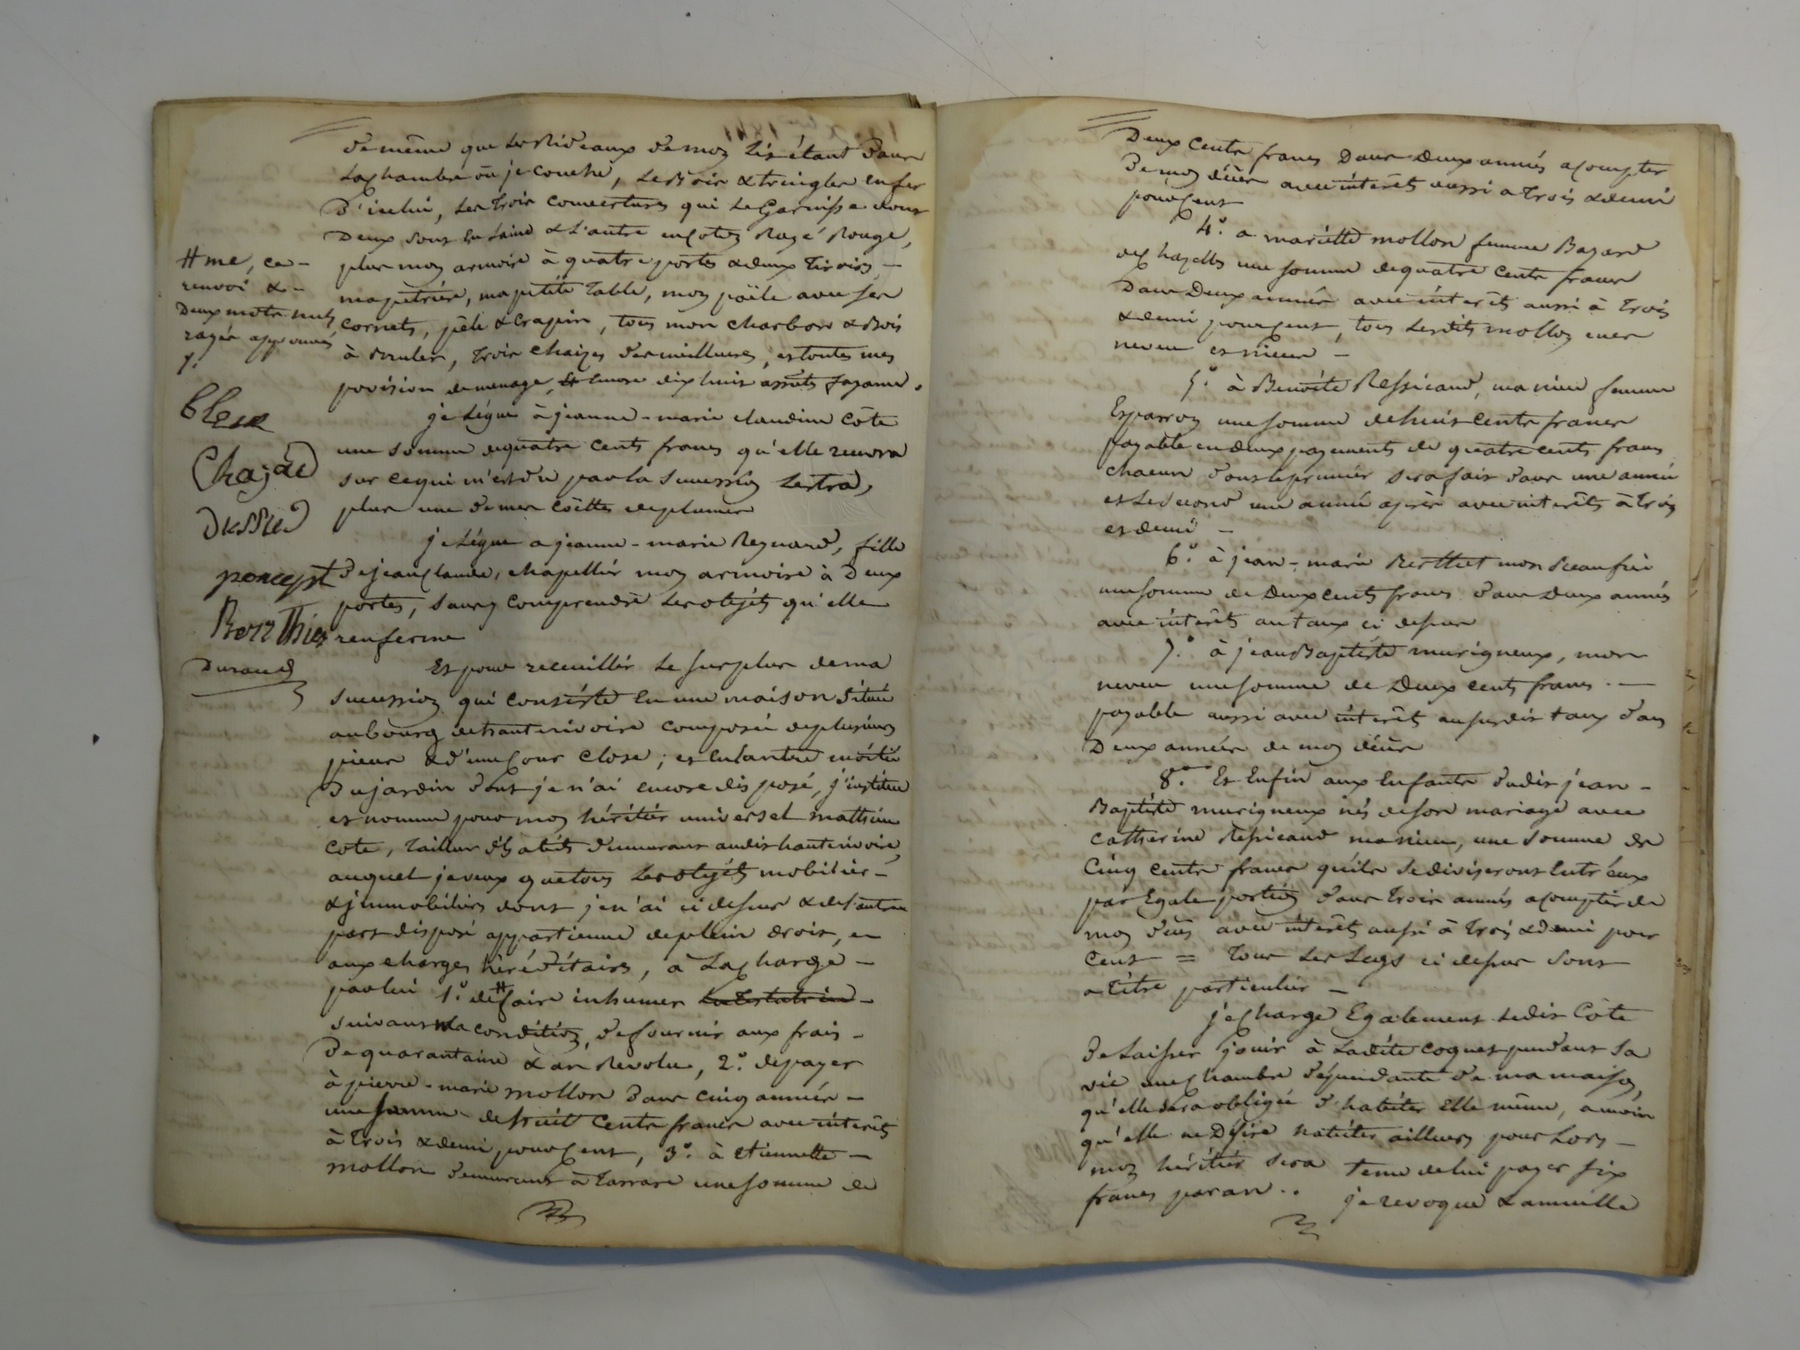 de même que les Rideaux de mon lis étant dans
la chambre où je couche, le Bois & tringles en fer
D'icelui, les trois couvertures qui le Garnisse dont
Deux sont en Laine & l'autre en coton Rayé Rouge,
plus mon armoire à quatre portes & deux tiroirs, –
ma petrière, ma petite table, mon poële avec ses
cornets, pèle & crapin, tous mon charbon & Bois
à bruler, trois chaizes des meilleures, et toutes mes
povision de menage, & encore dix huit
je Lègue à jeanne-marie claudine Côte
une somme de quatre cents francs qu'elle recevra
sur ce qui m'est dû par la sucession Lestra,
plus une de mes coëttes de plumes
je Lègue a jeanne-marie Reynard, fille
de jean claude, chapellier mon armoire à Deux
portes, sans y comprendre les objéts qu'elle
renferme
Et pour receuillir le surplus de ma
sucession qui consiste en une maison située
au bourg de hauterivoire composée de plusieurs
pieces & d'une Cour close; et en l'autre moitié
Du jardin dont je n'ai encore disposé, j'institue
et nomme pour mon héritier universel mathieu
Cote, tailleur d'habits demeurant audit hauterivoire,
auquel je veux que tous les objéts mobilier –
& immobiliers dont je n'ai ci dessus & de l'autre
part disposé appartienne de plein droit, et
aux charges hérèditaires, à La charge –
par lui 1.° de # faire inhumer la testatrice –
suivant ma condition, de fournir aux frais –
De quarantaine & an Revolu, 2.° de payer
à pierre-marie mollon dans cinq années –
une somme de huit Cents francs avec intérêts
à trois & demi pour Cent, 3.° à etiennette –
mollon demeurant à tarrare une somme de
# me, ce –
renvoi & –
Deux mots nuls
rayés approuvés
/.
Chazal
Dussud
poncept
Berthier
Durand
Deux Cents francs dans Deux années a compter
De mon décès avec intérêts aussi a trois & demi
pour Cent
4.° a mariette mollon femme Bazard
une somme de quatre Cents francs
Dans Deux années avec intérêts aussi à trois
& demi pour Cent, tous lesdits mollon mes
neveu et niece –
5.° à Benoite Ressicaud, ma niece femme
Esparron une somme de huit cents francs
payable en deux payements de quatre cents francs
chacun dont le premier sera fait dans une année
et le second une année après avec intérêts à trois
et demi –
6.° à jean-marie Berthet mon Beaufrère
une somme de Deux cents francs dans Deux années
avec intérêts au taux ci dessus
7.° à jean Baptiste murigneux, mon
neveu une somme de Deux cents francs. –
payable aussi avec intérêts au susdit taux dans
Deux années de mon décès
8.° Et Enfin aux Enfants dudit jean –
Baptiste murigneux nés de son mariage avec
Catherine Ressicaud ma niece, une somme de
Cinq cents francs qu'ils se diviseront entr'eux
par Egale portion dans trois années a compter de
mon décès avec intérêts aussi à trois & demi pour
Cent = tous les Legs ci dessus sont
a titre particulier –
je charge Egalement ledit Côte
De Laisser jouir à Ladite Coquet pendant sa
vie une chambre dépendante de ma maison,
qu'elle sera obligée d'habiter Elle même, a moins
qu'elle ne Désire habiter ailleurs pour Lors –
mon héritier sera tenu de lui payer six
francs par an. . je revoque & annulle